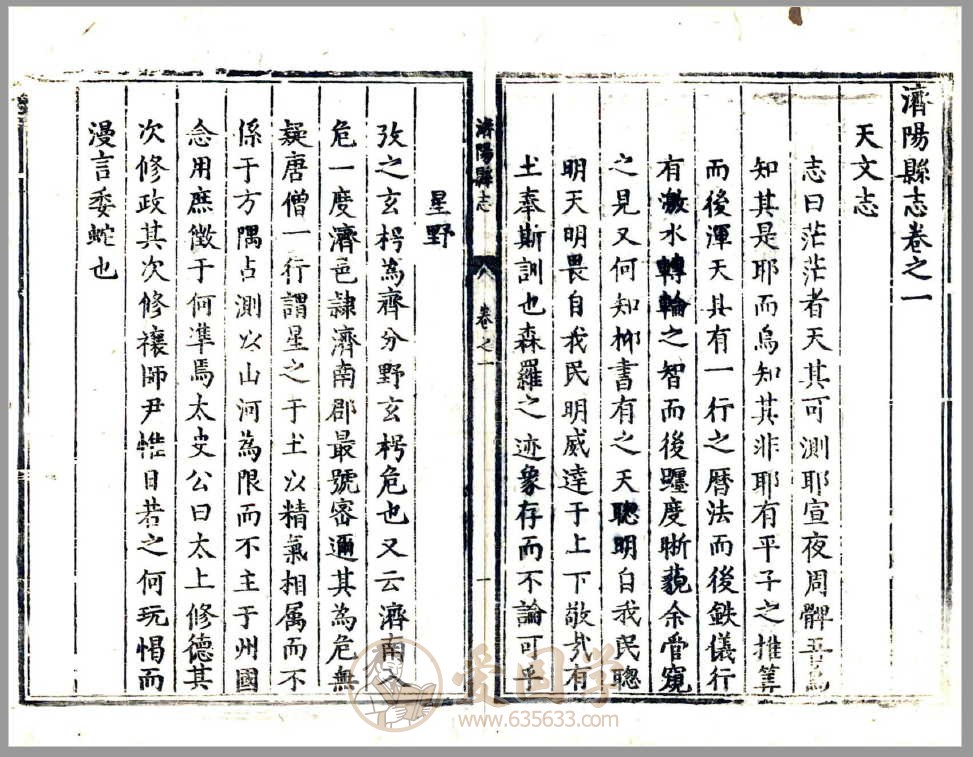 濟陽縣志卷之一
天文志
志曰茫茫者天其可測耶宣夜周髀吾烏
知其是耶而烏知其非耶有平子之推筭
而後渾天具有一行之曆法而後鉄儀行
有激水轉輪之智而後躔度晰藐余管窺
之見又何知抑書有之天聰明自我民聰
明天明畏自我民明威達于上下敬㢤有
土奉斯訓也森羅之迹象存而不論可乎
濟陽縣志
卷之一
一
星野
攷之玄枵為齊分野玄枵危也又云濟南入
危一度濟邑隷濟南郡最號密邇其為危無
疑唐僧一行謂星之于土以精氣相属而不
係于方隅占測以山河為限而不主于州國
念用庶徵于何準焉太史公曰太上修德其
次修政其次修禳師尹惟日若之何玩愒而
漫言委蛇也
爱国学
www.635633.com